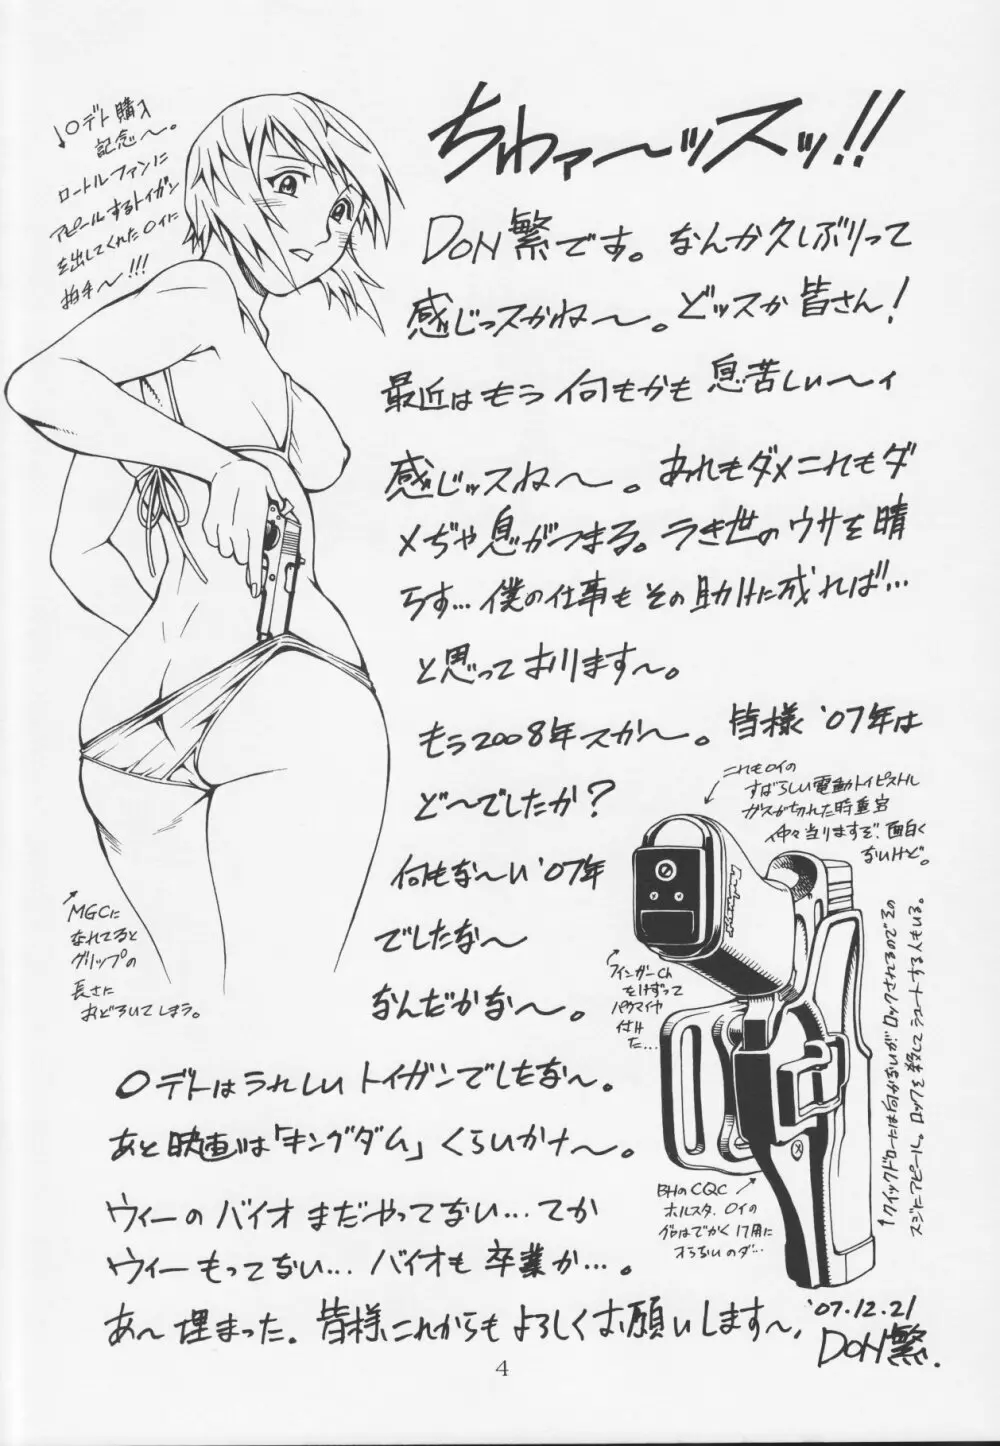 ちわァ〜ッスッ!!
DON繁です。なんか久しぶりって
感じっスかね〜。どッスか皆さん!
最近はもう何もかも息苦しい〜ィ
感じッスね〜。あれもダメこれもダ
メぢゃ息がつまる。うき世のウサを晴
らす…僕の仕事もその助けに成れば…
と思っております〜。
もう2008年スか〜。皆様'07年は
ど〜でしたか?
何もな〜い'07年
でしたな〜
なんだかな〜。
〇デトはうれしいトイガンでしたな〜。
あと映画は「キングダム」くらいかナ〜。
ウィーのバイオまだやってない…てか
ウィーもってない…バイオも卒業か…。
あ〜埋まった。皆様これからもよろしくお願いします〜。
'07.12.21
DON繁.
↓〇デト購入
記念〜。
ロートルファンに
アピールするトイガン
を出してくれた〇イに
拍手〜!!!
MGCに
なれてると
グリップの
長さに
おどろいてしまう。
これも〇イの
すばらしい電動トイピストル
ガスが切れた時重宝
仲々当りますぞ、面白く
ないけど。
フィンガーCh
をけずって
パクマイヤ
付けた…
BHのCQC
ホルスタ、〇イの
グロはでかく17用に
入らないのダ…
↑クイックドローには向かないがロックされるのでその
スジにアピール。ロックを殺してシュートする人もいる。
4